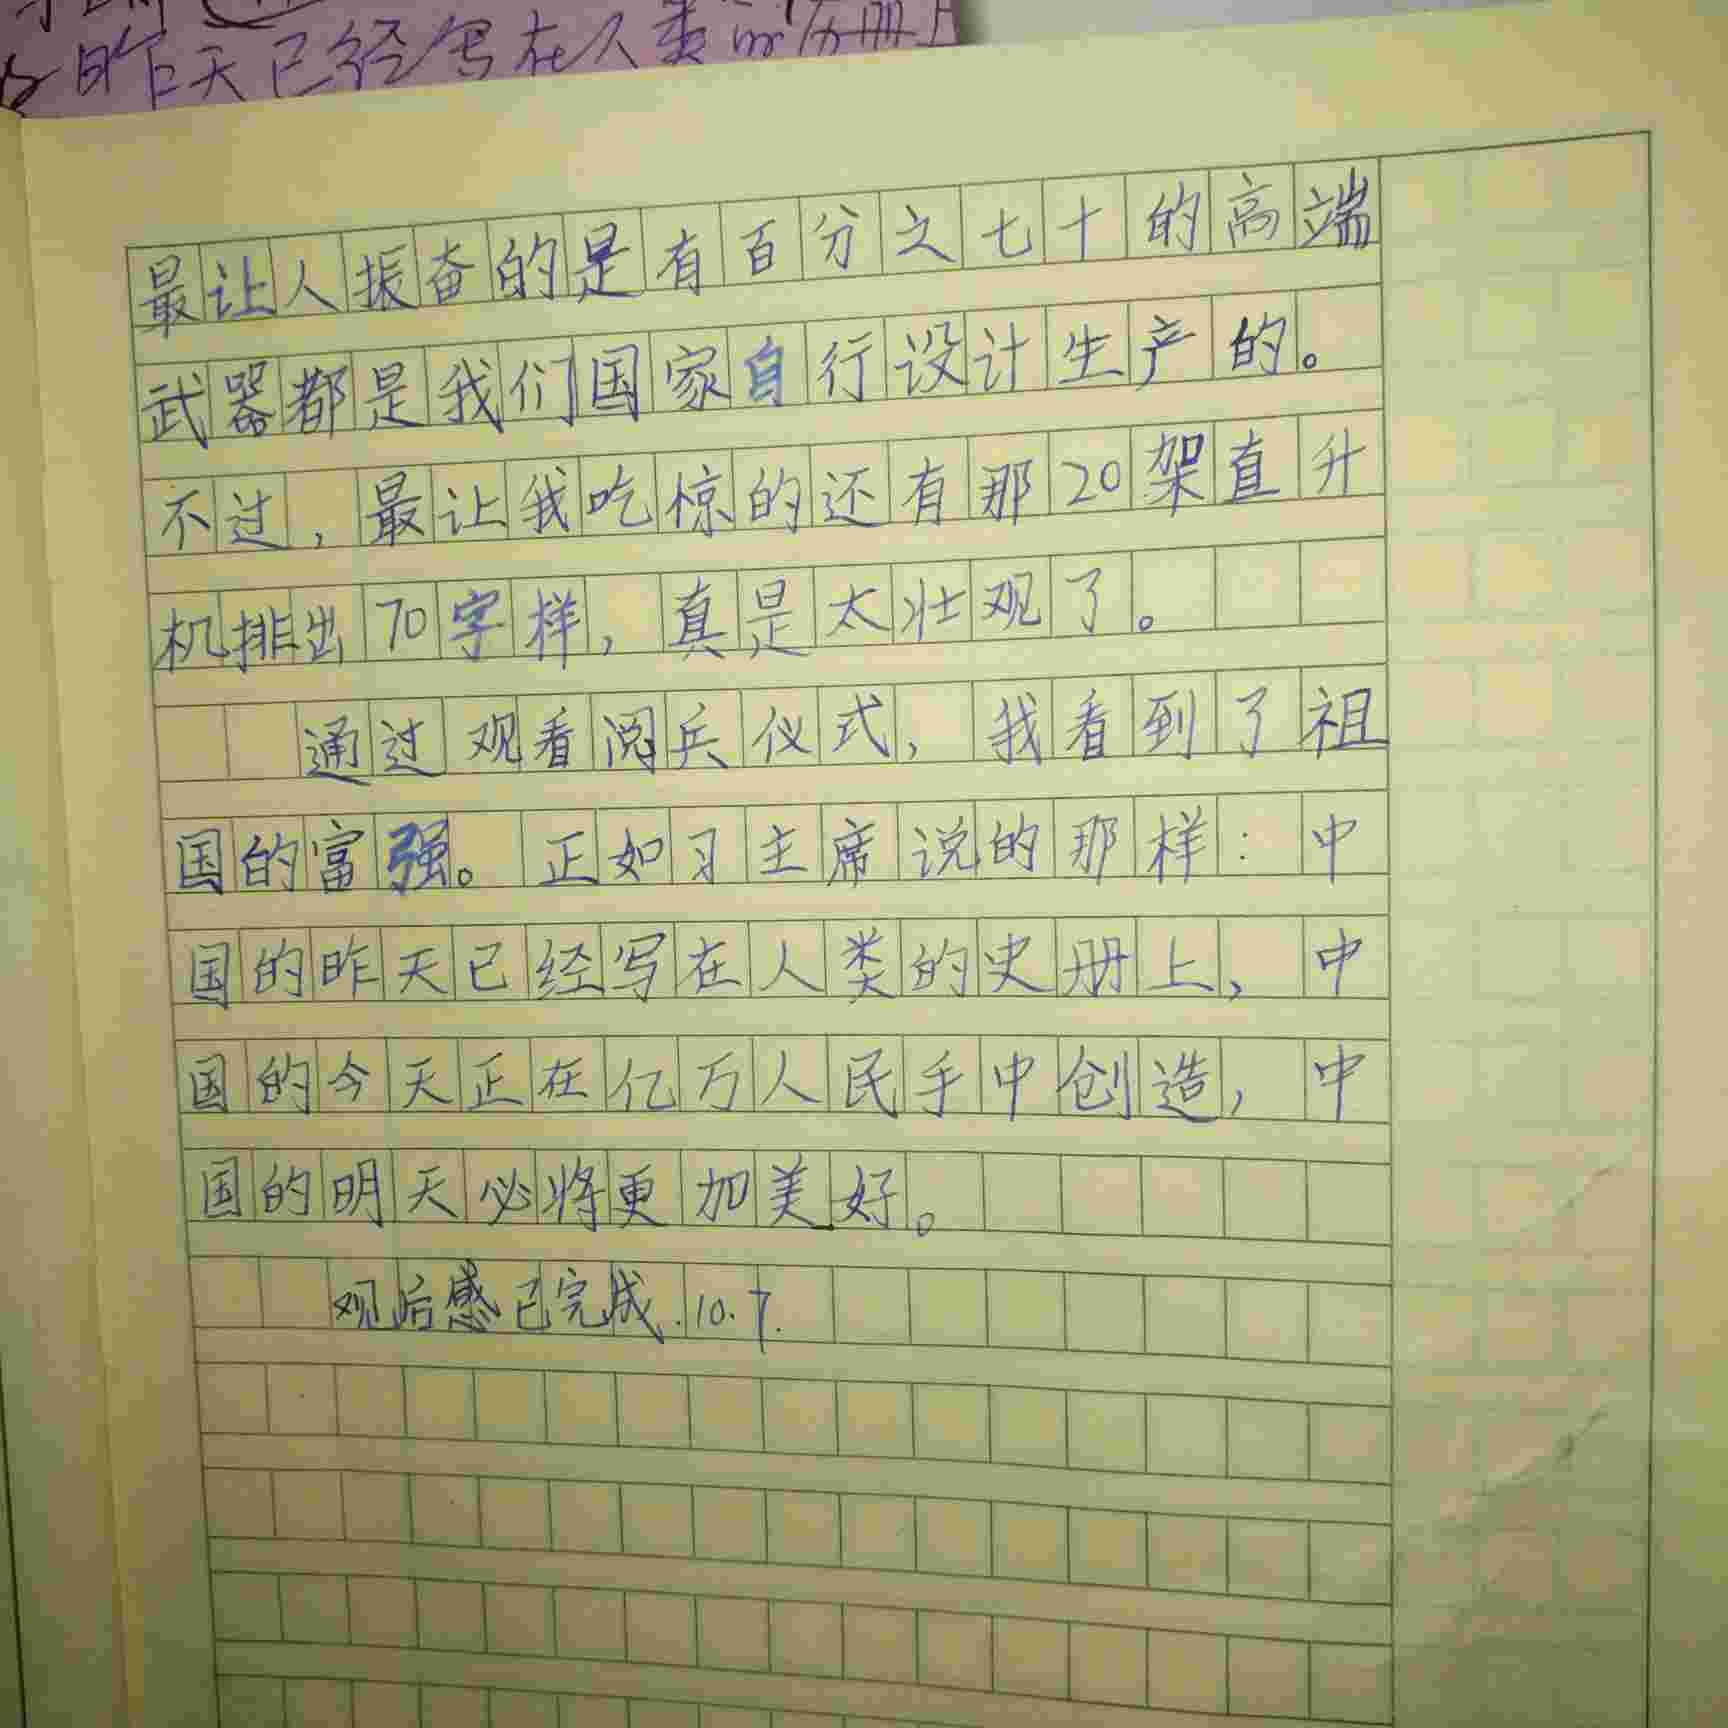 昨天已经写在人类的历册上
最让人振奋的是有百分之七十的高端
武器都是我们国家自行设计生产的。
不过，最让我吃惊的还有那20架直升
机排出70字样，真是太壮观了。
通过观看阅兵仪式，我看到了祖
国的富强。正如习主席说的那样：中
国的昨天已经写在人类的史册上，中
国的今天正在亿万人民手中创造，中
国的明天必将更加美好。
观后感已完成.10.7.